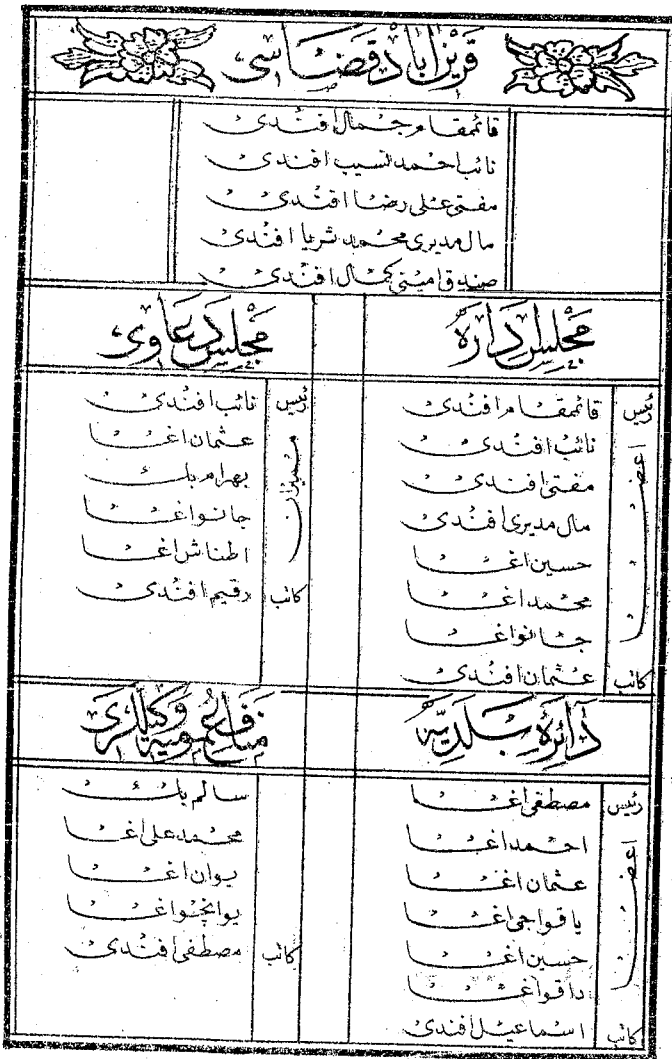 قزیل اباد قضاسی
قائمقام جمال افندی
نائب احمد نسیب افندی
مفتی علی رضا افندی
مال مدیری محمد ثریا افندی
صندوق امینی کمال افندی
مجلس اداره
رئیس قائمقام افندی
اعضا نائب افندی
مفتی افندی
مال مدیری افندی
حسین اغا
محمد اغا
جانو اغا
کاتب عثمان افندی
مجلس دعاوی
رئیس نائب افندی
ممیزان عثمان اغا
بهرام بك
جانو اغا
اطناش اغا
کاتب رقیم افندی
دائرۀ بلدیه
رئیس مصطفی اغا
اعضا احمد اغا
عثمان اغا
یاقواجی اغا
حسین اغا
داقو اغا
کاتب اسماعیل افندی
منافع عمومیه وکیللری
سالم بك
محمد علی اغا
یوان اغا
یوانچو اغا
کاتب مصطفی افندی